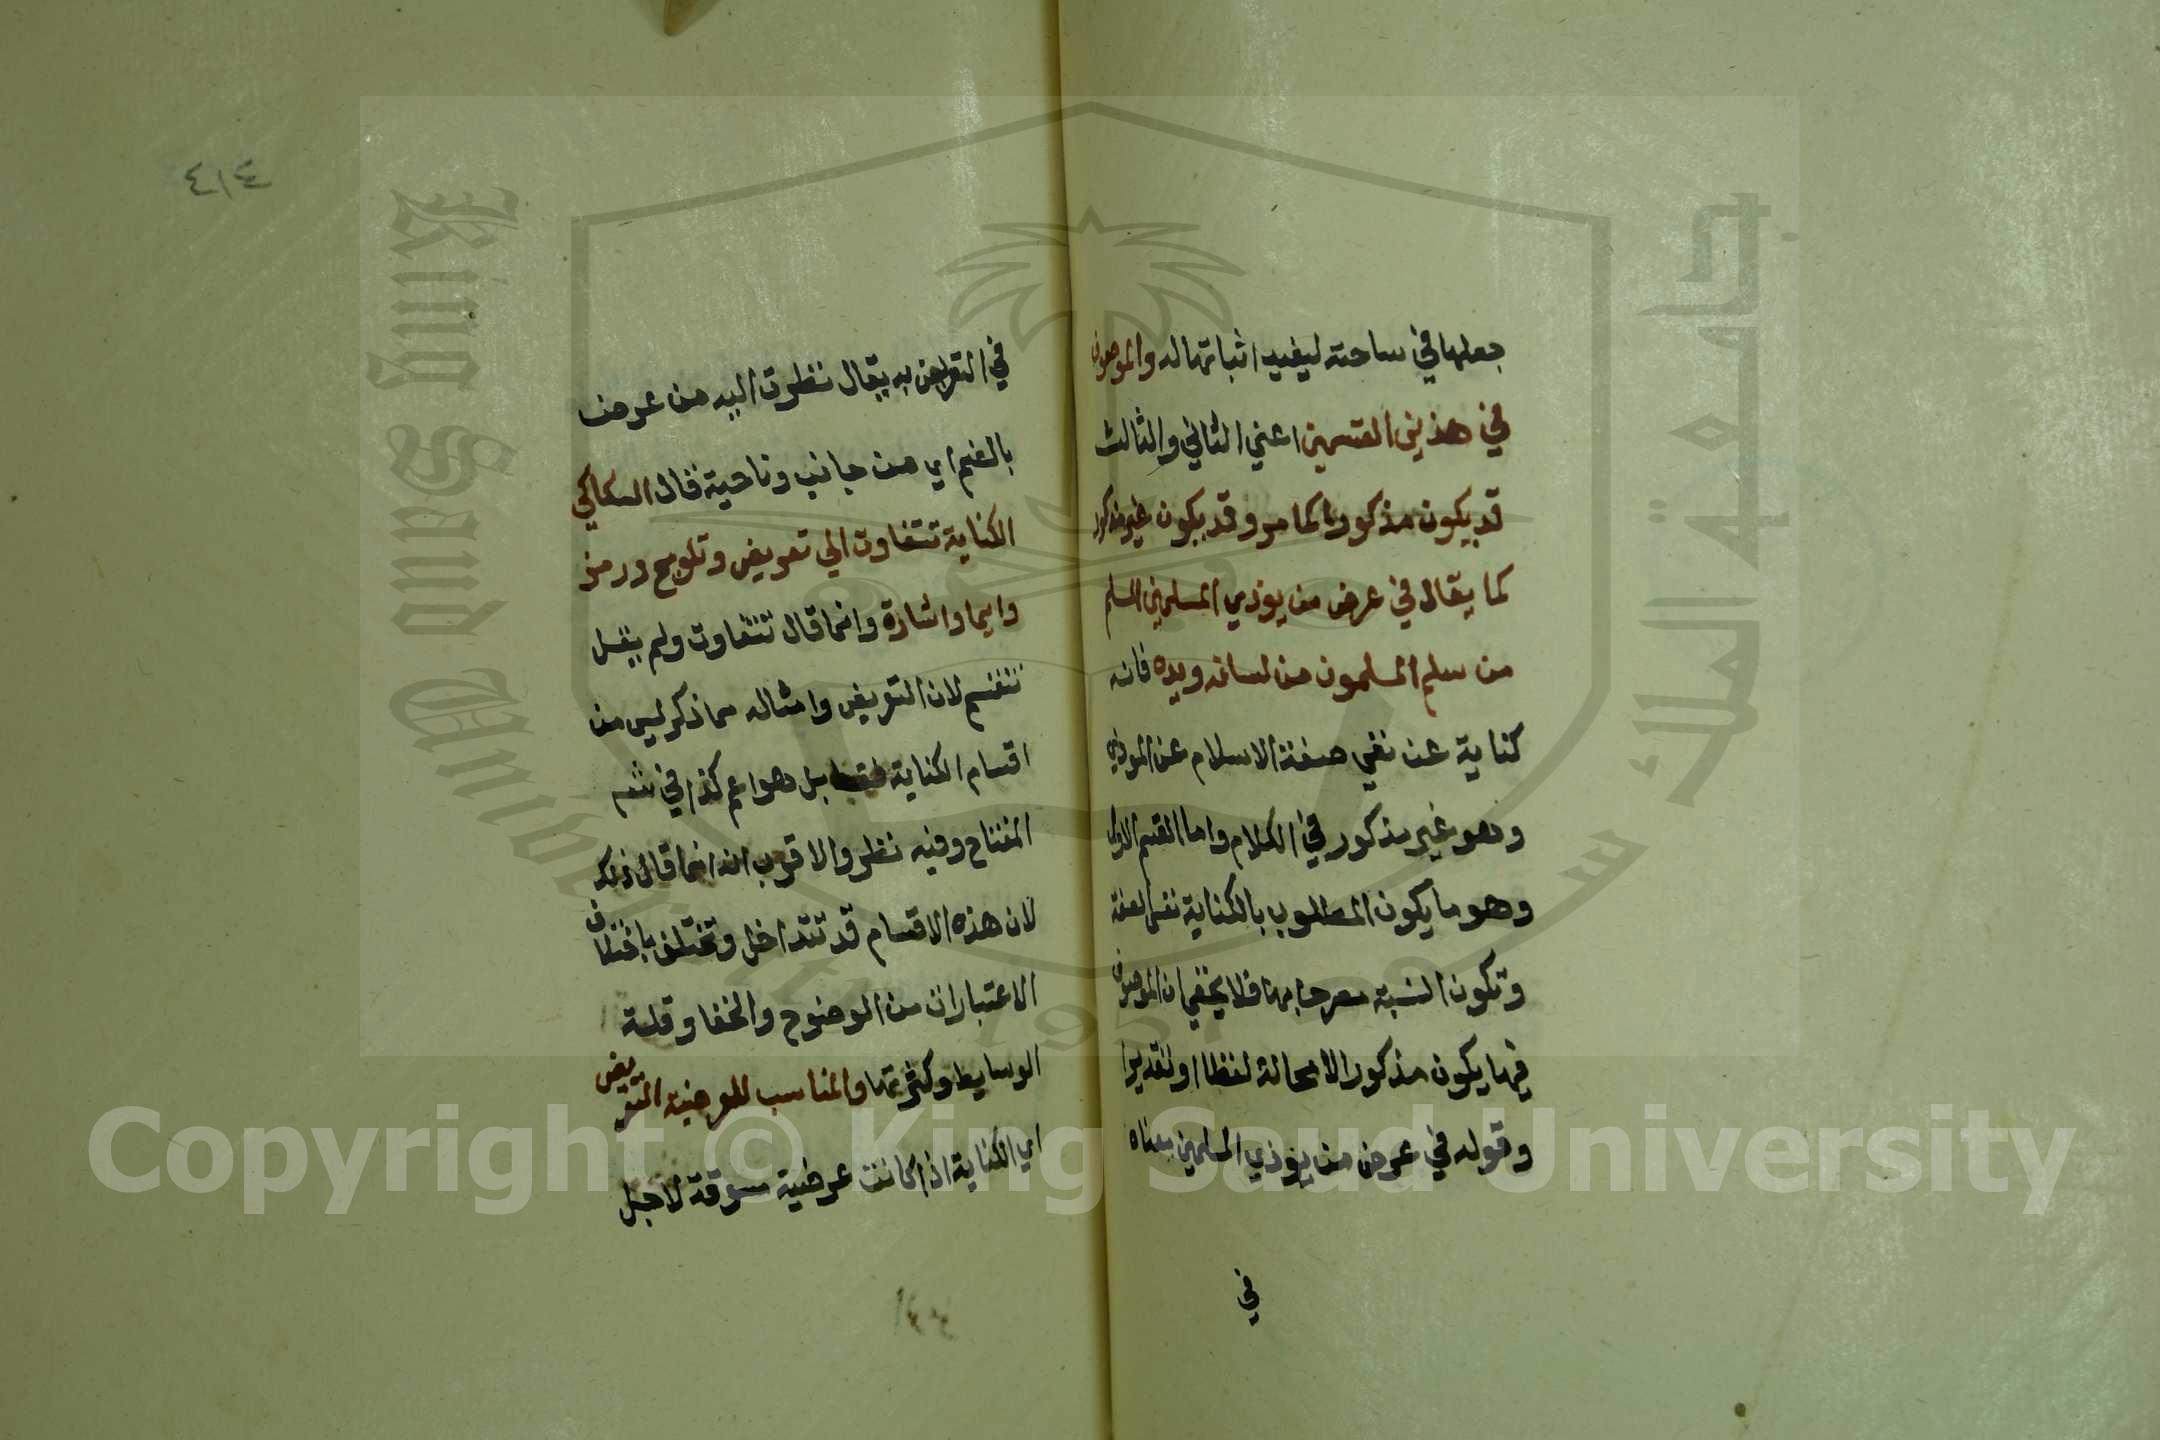 جعلها في ساحته ليفيد اثباتها له والموصوف
في هذين القسمين اعني الثاني والثالث
قد يكون مذكورا كما مر وقد يكون غير مذكور
كما يقال في عرض من يوذي المسلمين المسلم
من سلم المسلمون من لسانه ويده فانه
كناية عن نفي صفة الاسلام عن الموذي
وهو غير مذكور في الكلام واما القسم الاول
وهو ما يكون المطلوب بالكناية نفس الصفة
وتكون النسبة مصرحا بها فلا يخفي ان الموصوف
فيها يكون مذكورا لا محالة لفظا او تقديرا
وقوله في عرض من يوذي المسلمين معناه
في
٤١٤
في التعريض به يقال نظرت اليه من عرض
بالضم اي من جانب وناحية قال السكاكي
الكناية تتفاوت الي تعريض وتلويح ورمز
وايما واشارة وانما قال تتفاوت ولم يقل
تنقسم لان التعريض وامثاله مما ذكر ليس من
اقسام الكناية فقط بل هو اعم كذا في شرح
المفتاح وفيه نظر والاقرب انه انما قال ذلك
لان هذه الاقسام قد تتداخل وتختلف باختلاف
الاعتبارات من الوضوح والخفا وقلة
الوسايط وكثرتها والمناسب للعرضية التعريض
اي الكناية اذا كانت عرضية مسوقة لاجل
King Saud University
جامعة الملك سعود
1957
Copyright © King Saud University